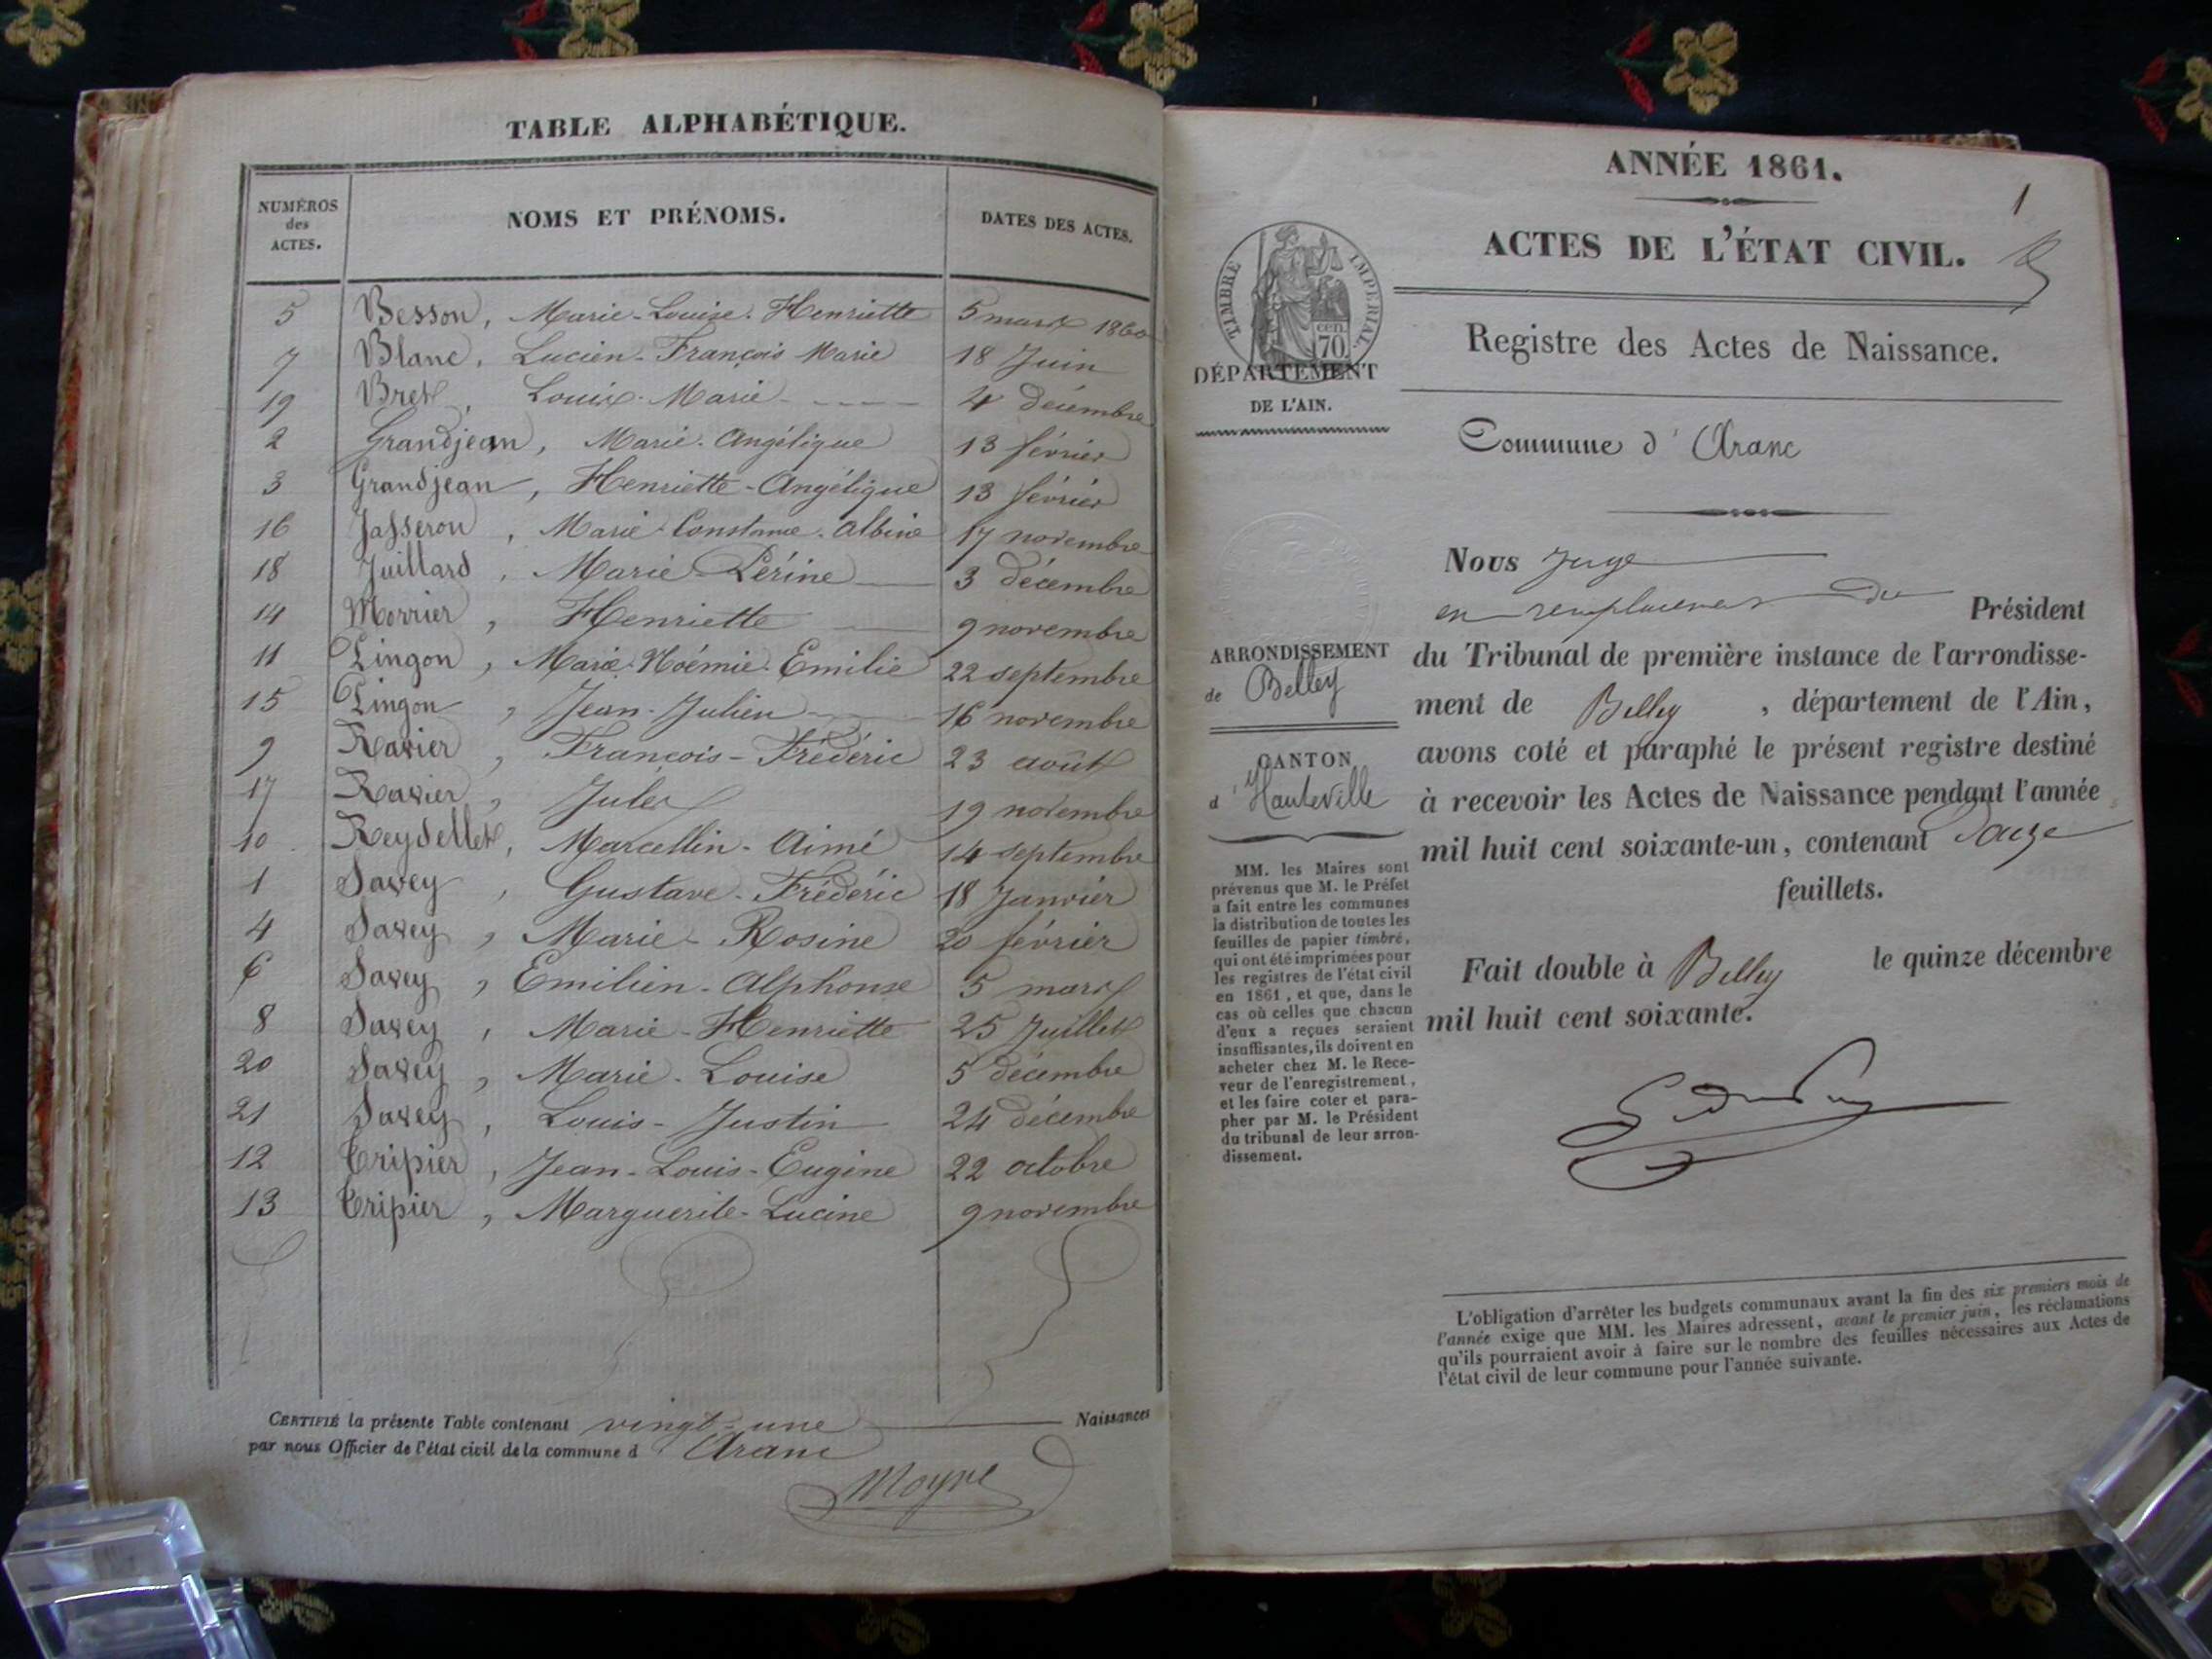 TABLE ALPHABÉTIQUE.
NUMÉROS des ACTES. NOMS ET PRÉNOMS. DATES DES ACTES.
5 Besson, Marie-Louise-Henriette 5 mars 1860
7 Blanc, Lucien-François Marie 18 Juin
19 Bret, Louis-Marie 4 décembre
2 Grandjean, Marie-Angélique 13 février
3 Grandjean, Henriette-Angélique 13 février
16 Jasseron, Marie-Constance-Albine 17 novembre
18 Juillard, Marie-Périne 3 décembre
14 Morrier, Henriette 9 novembre
11 Pingon, Marie-Noémie-Emilie 22 septembre
15 Pingon, Jean-Julien 16 novembre
9 Ravier, François-Frédéric 23 août
17 Ravier, Jules 19 novembre
10 Reydellet, Marcellin-Aimé 14 septembre
1 Savey, Gustave-Frédéric 18 Janvier
4 Savey, Marie-Rosine 20 février
6 Savey, Emilien-Alphonse 5 mars
8 Savey, Marie-Henriette 25 Juillet
20 Savey, Marie-Louise 5 décembre
21 Savey, Louis-Justin 24 décembre
12 Tripier, Jean-Louis-Eugène 22 octobre
13 Tripier, Marguerite-Lucine 9 novembre
CERTIFIÉ la présente Table contenant vingt-une Naissances
par nous Officier de l'état civil de la commune d'Aranc
Moyre
ANNÉE 1861.
1
ACTES DE L'ÉTAT CIVIL.
Registre des Actes de Naissance.
TIMBRE IMPERIAL.
cen. 70
DÉPARTEMENT
DE L'AIN.
Commune d'Aranc
Nous Juge
en remplacement du Président
du Tribunal de première instance de l'arrondisse-
ment de Belley, département de l'Ain,
avons coté et paraphé le présent registre destiné
à recevoir les Actes de Naissance pendant l'année
mil huit cent soixante-un, contenant Douze
feuillets.
Fait double à Belley le quinze décembre
mil huit cent soixante.
ARRONDISSEMENT
de Belley
CANTON
d'Hauteville
MM. les Maires sont
prévenus que M. le Préfet
a fait entre les communes
la distribution de toutes les
feuilles de papier timbré,
qui ont été imprimées pour
les registres de l'état civil
en 1861, et que, dans le
cas où celles que chacun
d'eux a reçues seraient
insuffisantes, ils doivent en
acheter chez M. le Rece-
veur de l'enregistrement,
et les faire coter et para-
pher par M. le Président
du tribunal de leur arron-
dissement.
L'obligation d'arrêter les budgets communaux avant la fin des six premiers mois de
l'année exige que MM. les Maires adressent, avant le premier juin, les réclamations
qu'ils pourraient avoir à faire sur le nombre des feuilles nécessaires aux Actes de
l'état civil de leur commune pour l'année suivante.